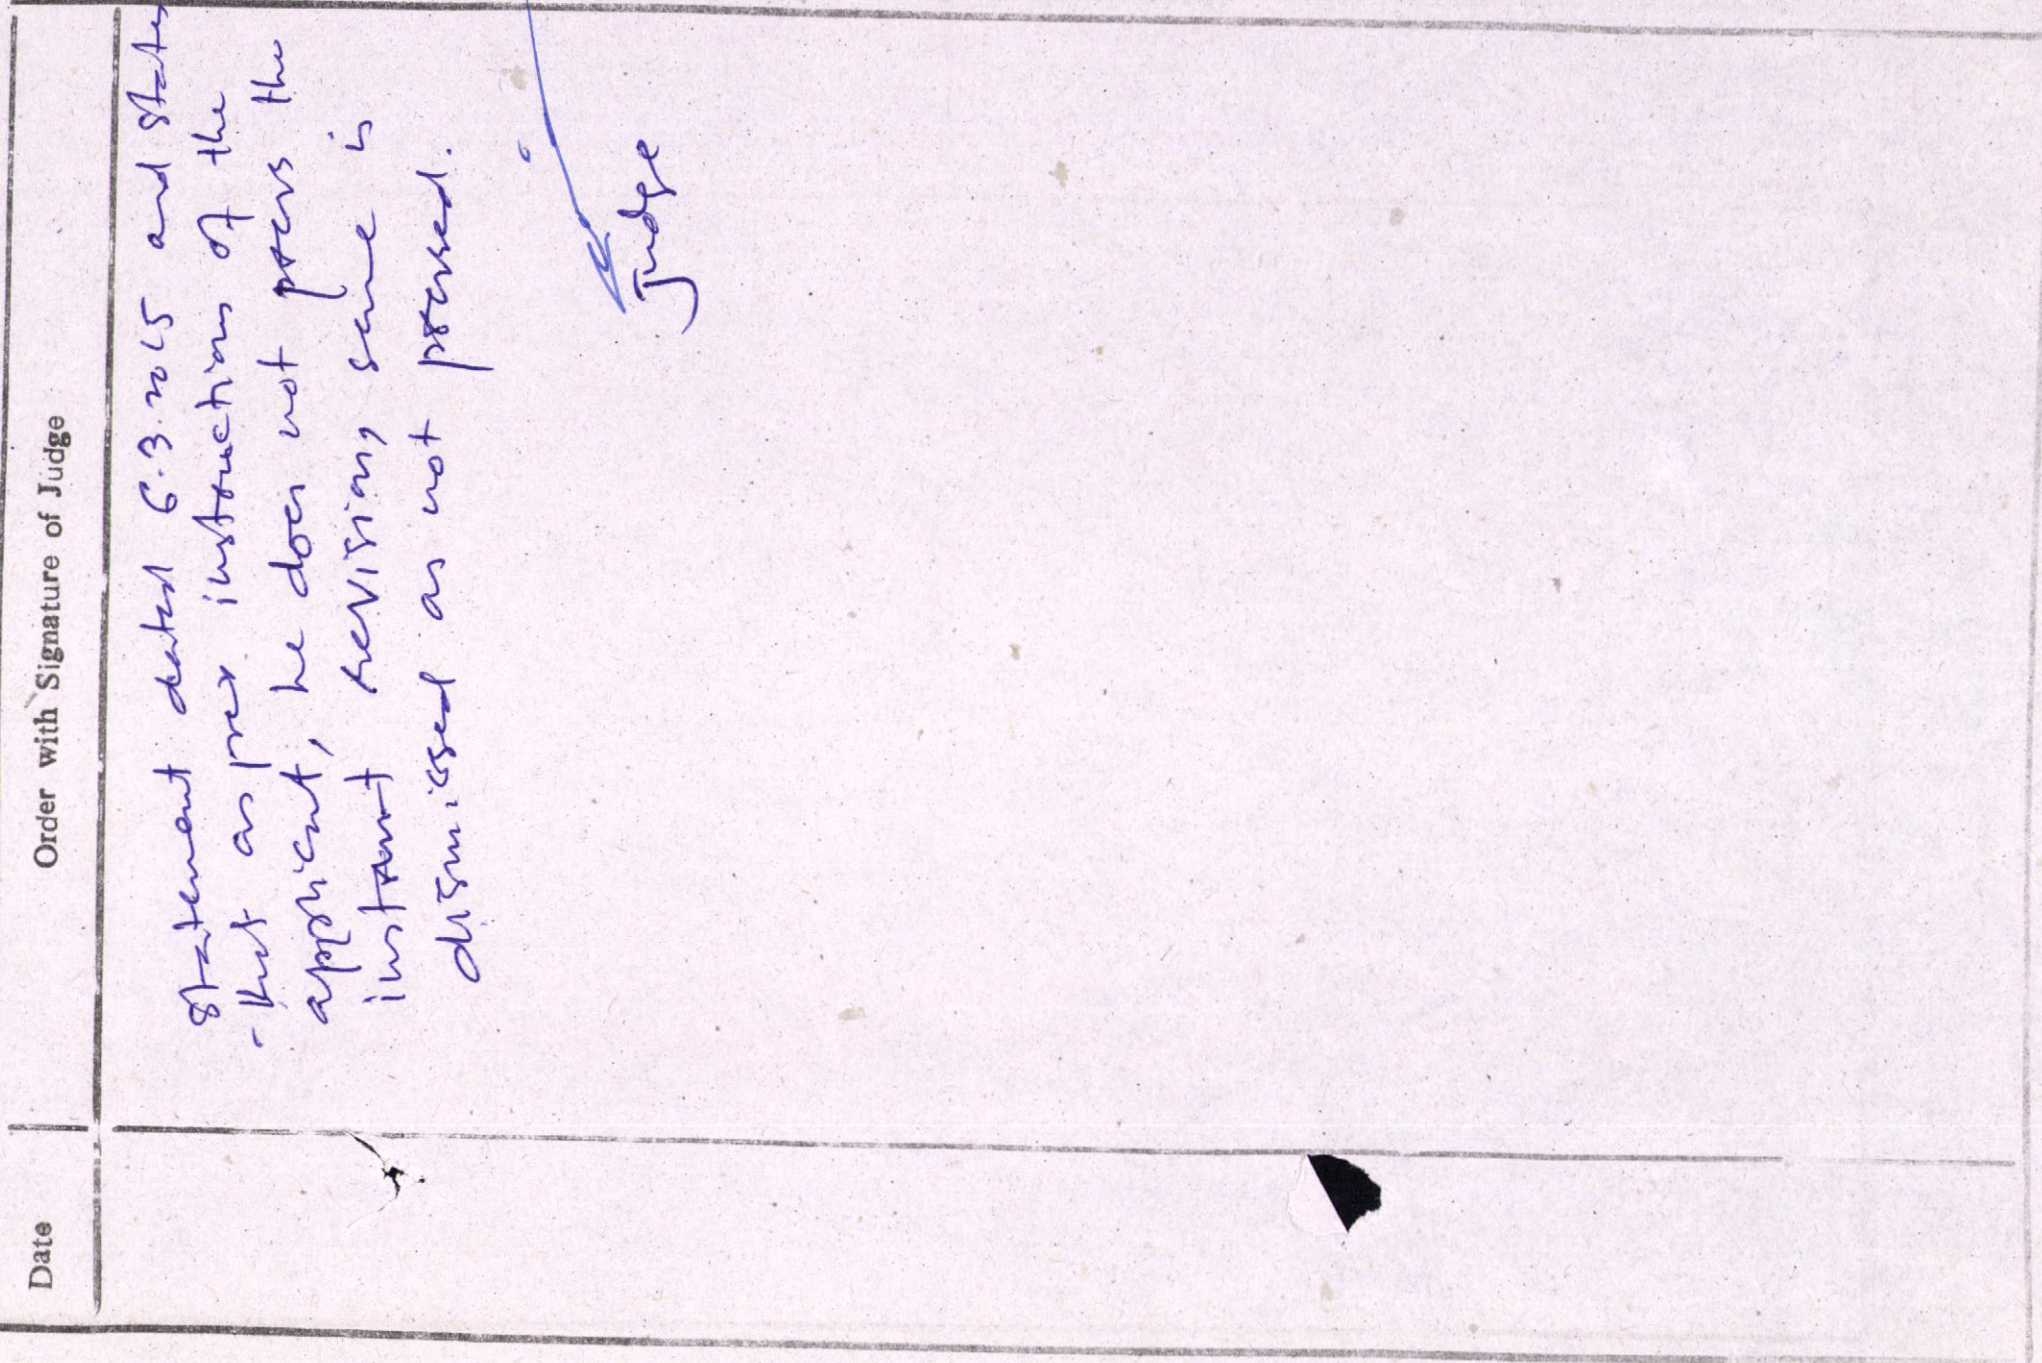 Date
Order with Signature of Judge
statement dated 6.3.2015 and states
that as per instructions of the
applicant, he does not press the
instant revision, same is
dismissed as not pressed.
Judge